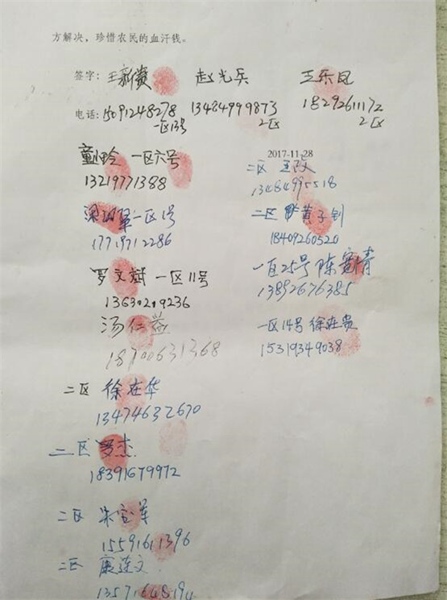 方解决，珍惜农民的血汗钱。
签字：王新贵 赵光兵 王乐昆
电话：15091248278 13484999873 18292611172
一区13号 二区 二区
一区六号
13219771388
2017-11-28
二区
13484995518
一区1号
17719712286
二区 黄子钊
18409260520
罗文斌 一区11号
13630219236
一区25号 陈宽情
13892676385
汤仁
18700631368
一区14号 徐在贵
15319349038
二区 徐在华
13474632670
二区 罗杰
18391679972
二区 朱宝军
15591611396
二区 康莲文
13571648194